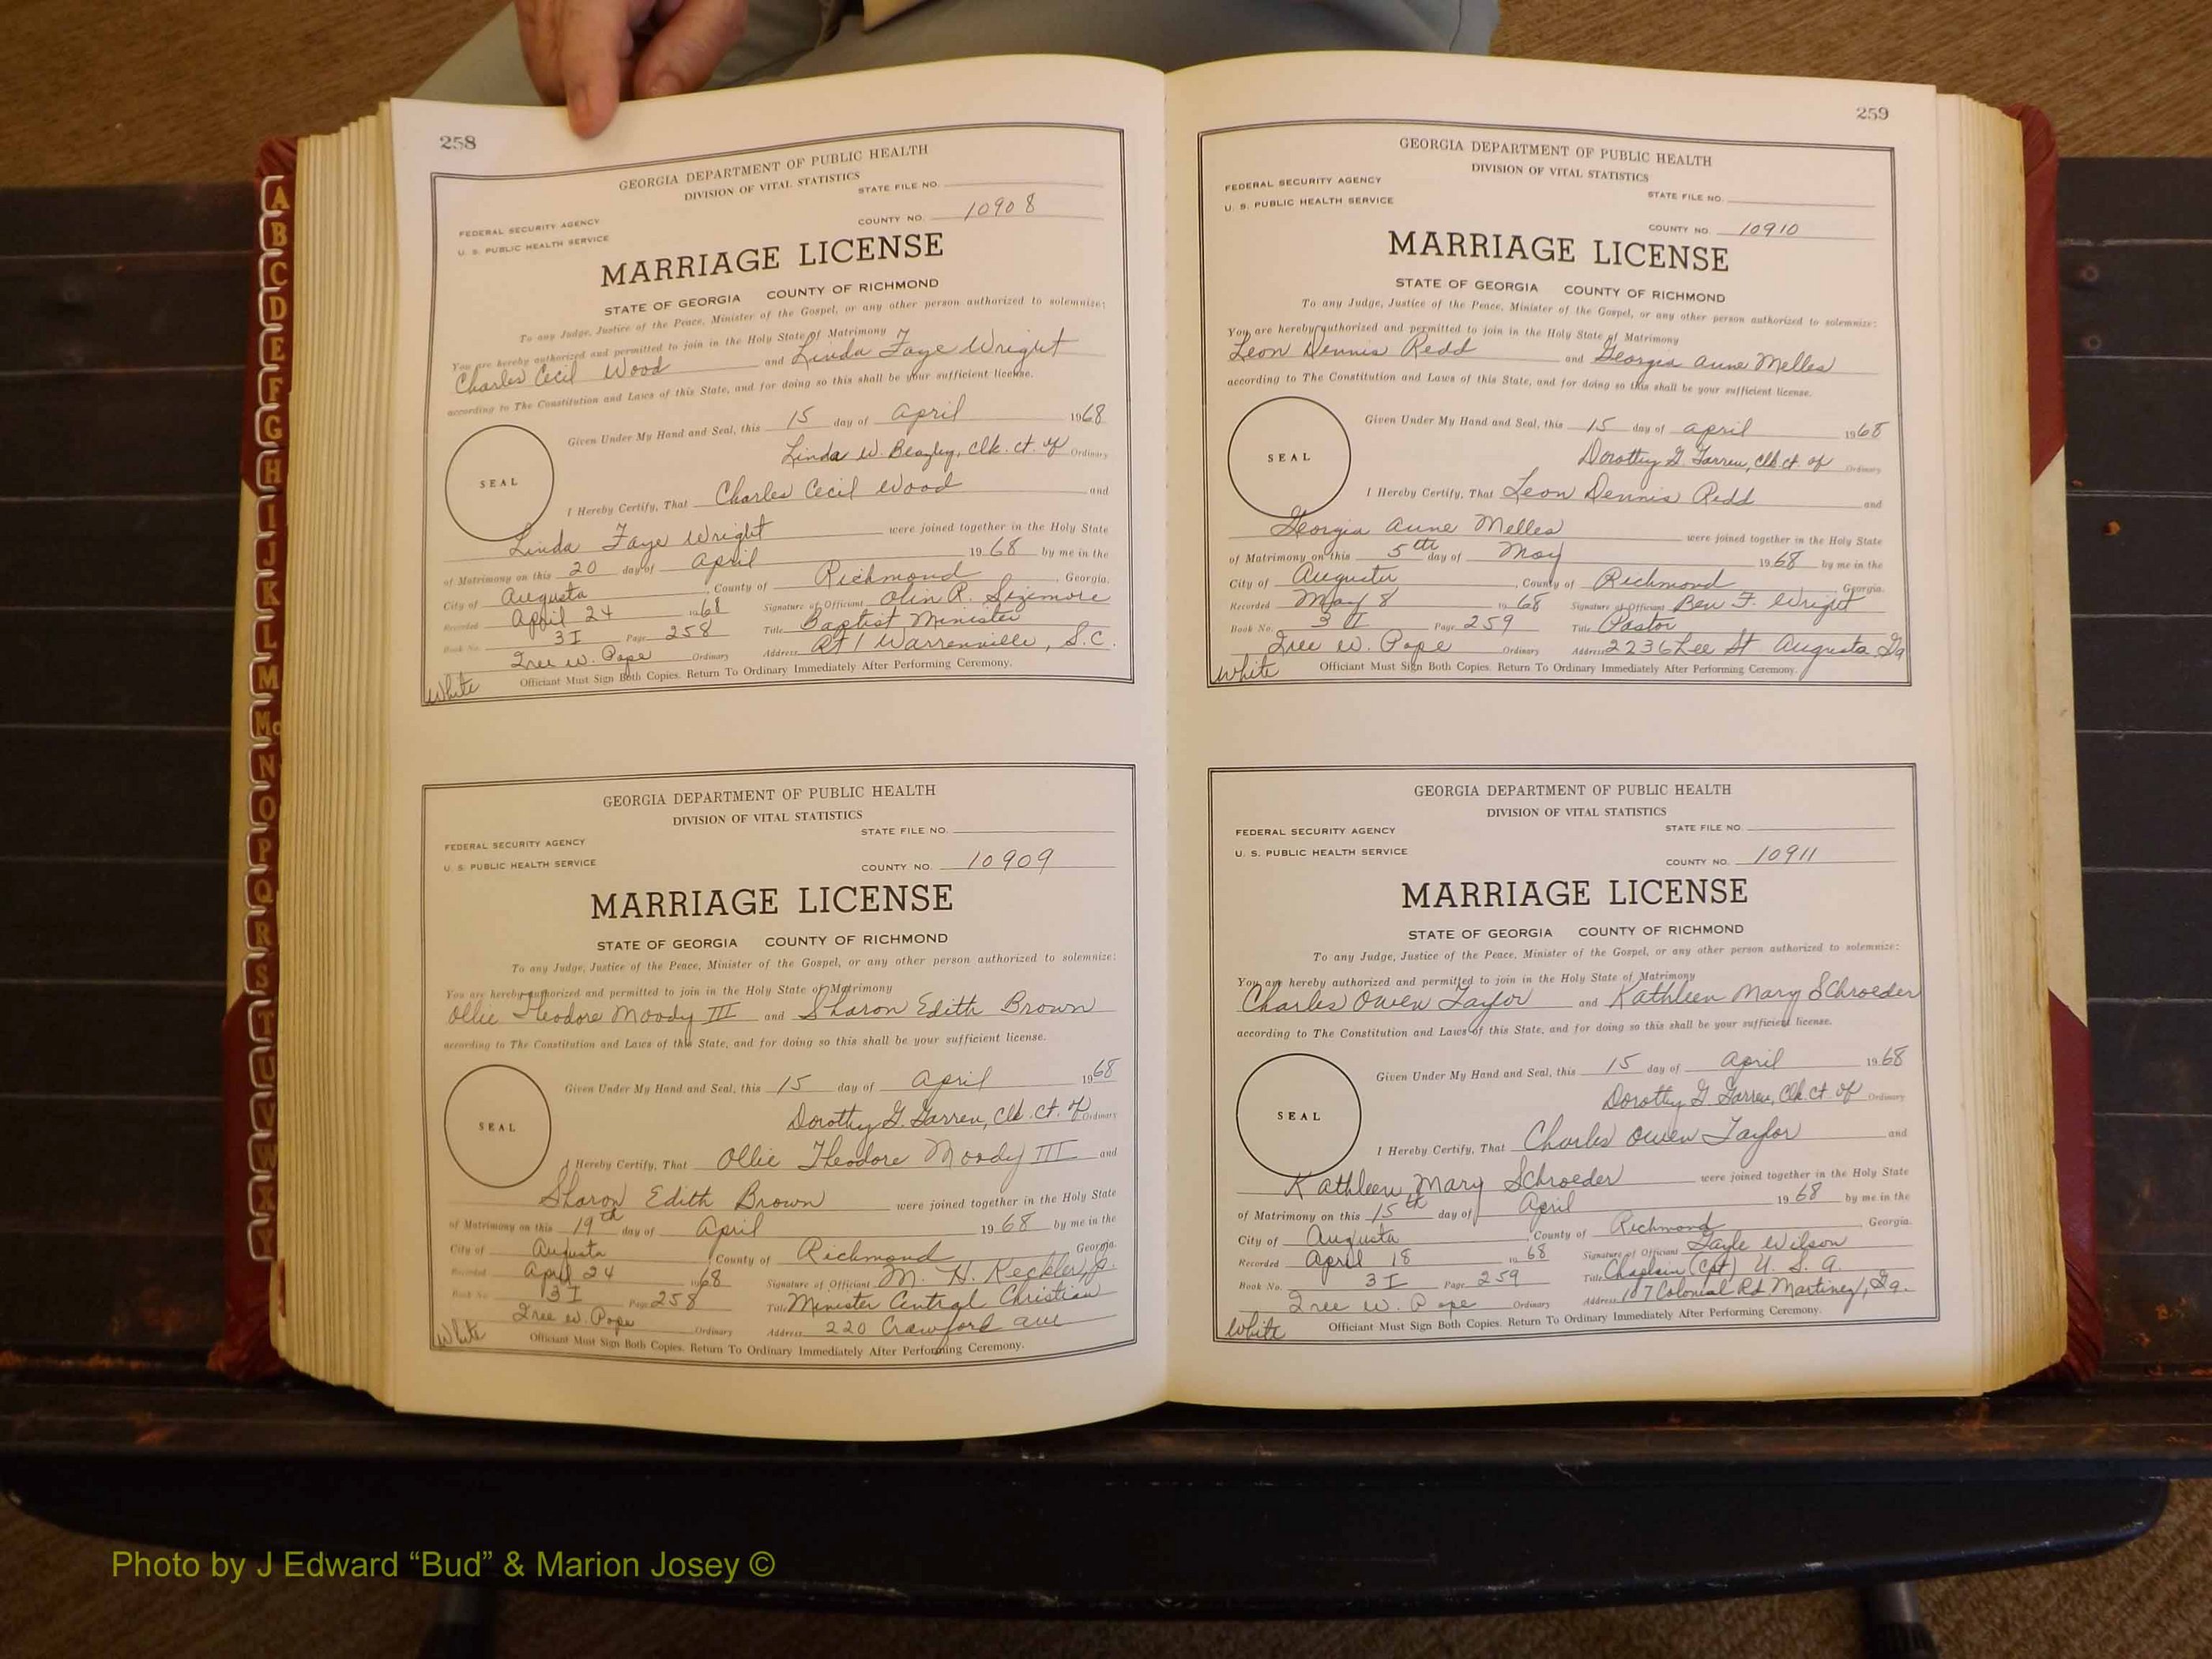 258
GEORGIA DEPARTMENT OF PUBLIC HEALTH
DIVISION OF VITAL STATISTICS
STATE FILE NO.
FEDERAL SECURITY AGENCY
U. S. PUBLIC HEALTH SERVICE
COUNTY NO. 10908
MARRIAGE LICENSE
STATE OF GEORGIA COUNTY OF RICHMOND
To any Judge, Justice of the Peace, Minister of the Gospel, or any other person authorized to solemnize:
You are hereby authorized and permitted to join in the Holy State of Matrimony
Charles Cecil Wood and Linda Faye Wright
according to The Constitution and Laws of this State, and for doing so this shall be your sufficient license.
Given Under My Hand and Seal, this 15 day of April 1968
Linda W. Beazley, Clk. Ct. of Ordinary
SEAL
I Hereby Certify, That Charles Cecil Wood and
Linda Faye Wright were joined together in the Holy State
of Matrimony on this 20 day of April 1968 by me in the
City of Augusta, County of Richmond, Georgia.
Recorded April 24 1968 Signature of Officiant Olin R. Sizemore
Book No. 3I Page 258 Title Baptist Minister
Tree W. Pope Ordinary Address Rt 1 Warrenville, S.C.
Officiant Must Sign Both Copies. Return To Ordinary Immediately After Performing Ceremony.
White
GEORGIA DEPARTMENT OF PUBLIC HEALTH
DIVISION OF VITAL STATISTICS
STATE FILE NO.
FEDERAL SECURITY AGENCY
U. S. PUBLIC HEALTH SERVICE
COUNTY NO. 10909
MARRIAGE LICENSE
STATE OF GEORGIA COUNTY OF RICHMOND
To any Judge, Justice of the Peace, Minister of the Gospel, or any other person authorized to solemnize:
You are hereby authorized and permitted to join in the Holy State of Matrimony
Ollie Theodore Moody III and Sharon Edith Brown
according to The Constitution and Laws of this State, and for doing so this shall be your sufficient license.
Given Under My Hand and Seal, this 15 day of April 1968
Dorothy G. Garren, Clk. Ct. of Ordinary
SEAL
I Hereby Certify, That Ollie Theodore Moody III and
Sharon Edith Brown were joined together in the Holy State
of Matrimony on this 19th day of April 1968 by me in the
City of Augusta, County of Richmond Georgia.
Recorded April 24 1968 Signature of Officiant M. H. Keckler, Jr.
Book No. 3I Page 258 Title Minister Central Christian
Tree W. Pope Ordinary Address 220 Crawford Ave
Officiant Must Sign Both Copies. Return To Ordinary Immediately After Performing Ceremony.
White
259
GEORGIA DEPARTMENT OF PUBLIC HEALTH
DIVISION OF VITAL STATISTICS
FEDERAL SECURITY AGENCY
STATE FILE NO.
U. S. PUBLIC HEALTH SERVICE
COUNTY NO. 10910
MARRIAGE LICENSE
STATE OF GEORGIA COUNTY OF RICHMOND
To any Judge, Justice of the Peace, Minister of the Gospel, or any other person authorized to solemnize:
You are hereby authorized and permitted to join in the Holy State of Matrimony
Leon Dennis Redd and Georgia Anne Melles
according to The Constitution and Laws of this State, and for doing so this shall be your sufficient license.
Given Under My Hand and Seal, this 15 day of April 1968
Dorothy G. Garren, Clk. Ct. of Ordinary
SEAL
I Hereby Certify, That Leon Dennis Redd and
Georgia Anne Melles were joined together in the Holy State
of Matrimony on this 5th day of May 1968 by me in the
City of Augusta, County of Richmond Georgia.
Recorded May 8 1968 Signature of Officiant Ben F. Wright
Book No. 3I Page 259 Title Pastor
Tree W. Pope Ordinary Address 2236 Lee St Augusta Ga
Officiant Must Sign Both Copies. Return To Ordinary Immediately After Performing Ceremony.
White
GEORGIA DEPARTMENT OF PUBLIC HEALTH
DIVISION OF VITAL STATISTICS
FEDERAL SECURITY AGENCY
STATE FILE NO.
U. S. PUBLIC HEALTH SERVICE
COUNTY NO. 10911
MARRIAGE LICENSE
STATE OF GEORGIA COUNTY OF RICHMOND
To any Judge, Justice of the Peace, Minister of the Gospel, or any other person authorized to solemnize:
You are hereby authorized and permitted to join in the Holy State of Matrimony
Charles Owen Taylor and Kathleen Mary Schroeder
according to The Constitution and Laws of this State, and for doing so this shall be your sufficient license.
Given Under My Hand and Seal, this 15 day of April 1968
Dorothy G. Garren, Clk. Ct. of Ordinary
SEAL
I Hereby Certify, That Charles Owen Taylor and
Kathleen Mary Schroeder were joined together in the Holy State
of Matrimony on this 15th day of April 1968 by me in the
City of Augusta, County of Richmond, Georgia.
Recorded April 18 1968 Signature of Officiant Gayle Wilson
Book No. 3I Page 259 Title Chaplain (Cpt) U. S. A.
Tree W. Pope Ordinary Address 107 Colonial Rd Martinez, Ga.
Officiant Must Sign Both Copies. Return To Ordinary Immediately After Performing Ceremony.
White
A
B
C
D
E
F
G
H
I
J
K
L
M
Mc
N
O
P
Q
R
S
T
U
V
W
X
Y
Photo by J Edward “Bud” & Marion Josey ©